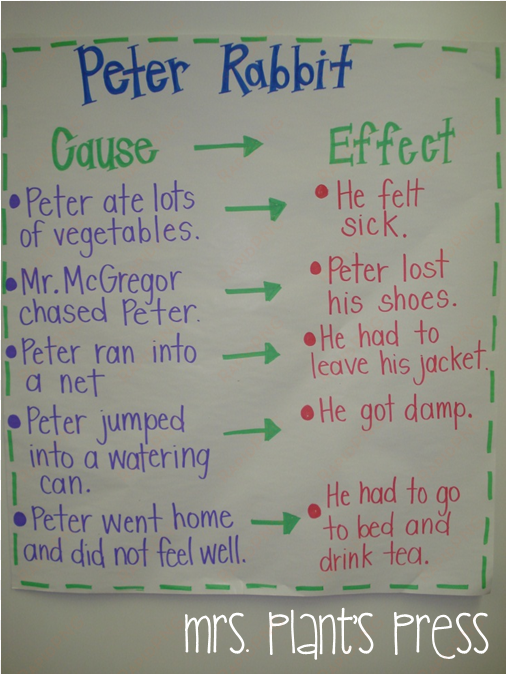 Peter Rabbit
Cause → Effect
• Peter ate lots
of vegetables.
→
• He felt
sick.
• Mr. McGregor
chased Peter.
→
• Peter lost
his shoes.
• Peter ran into
a net
→
• He had to
leave his jacket.
• Peter jumped
into a watering
can.
→
• He got damp.
• Peter went home
and did not feel well.
→
• He had to go
to bed and
drink tea.
mrs. Plant's Press